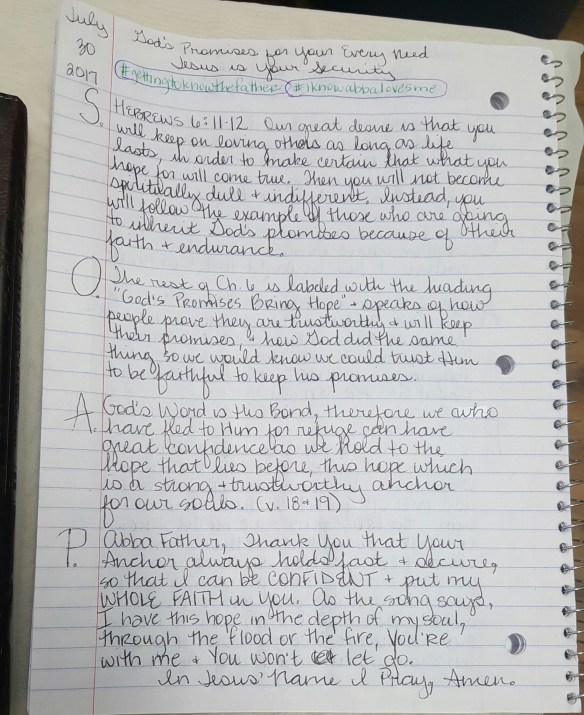 July
30
2017
God's Promises for Your Every Need
Jesus is Your Security
#gettingtoknowthefather #iknowabbalovesme
S. HEBREWS 6:11-12 Our great desire is that you
will keep on loving others as long as life
lasts, in order to make certain that what you
hope for will come true. Then you will not become
spiritually dull + indifferent. Instead, you
will follow the example of those who are going
to inherit God's promises because of their
faith + endurance.
O. The rest of Ch. 6 is labeled with the heading
"God's Promises Bring Hope" + speaks of how
people prove they are trustworthy + will keep
their promises, + how God did the same
thing so we would know we could trust Him
to be faithful to keep his promises.
A. God's Word is His Bond, therefore we who
have fled to Him for refuge can have
great confidence as we hold to the
hope that lies before, this hope which
is a strong + trustworthy anchor
for our souls. (v. 18+19)
P. Abba Father, Thank You that Your
Anchor always holds fast + secure,
so that I can be CONFIDENT + put my
WHOLE FAITH in You. As the song says,
I have this hope in the depth of my soul,
through the flood or the fire, You're
with me + You won't let go.
In Jesus' Name I Pray, Amen.